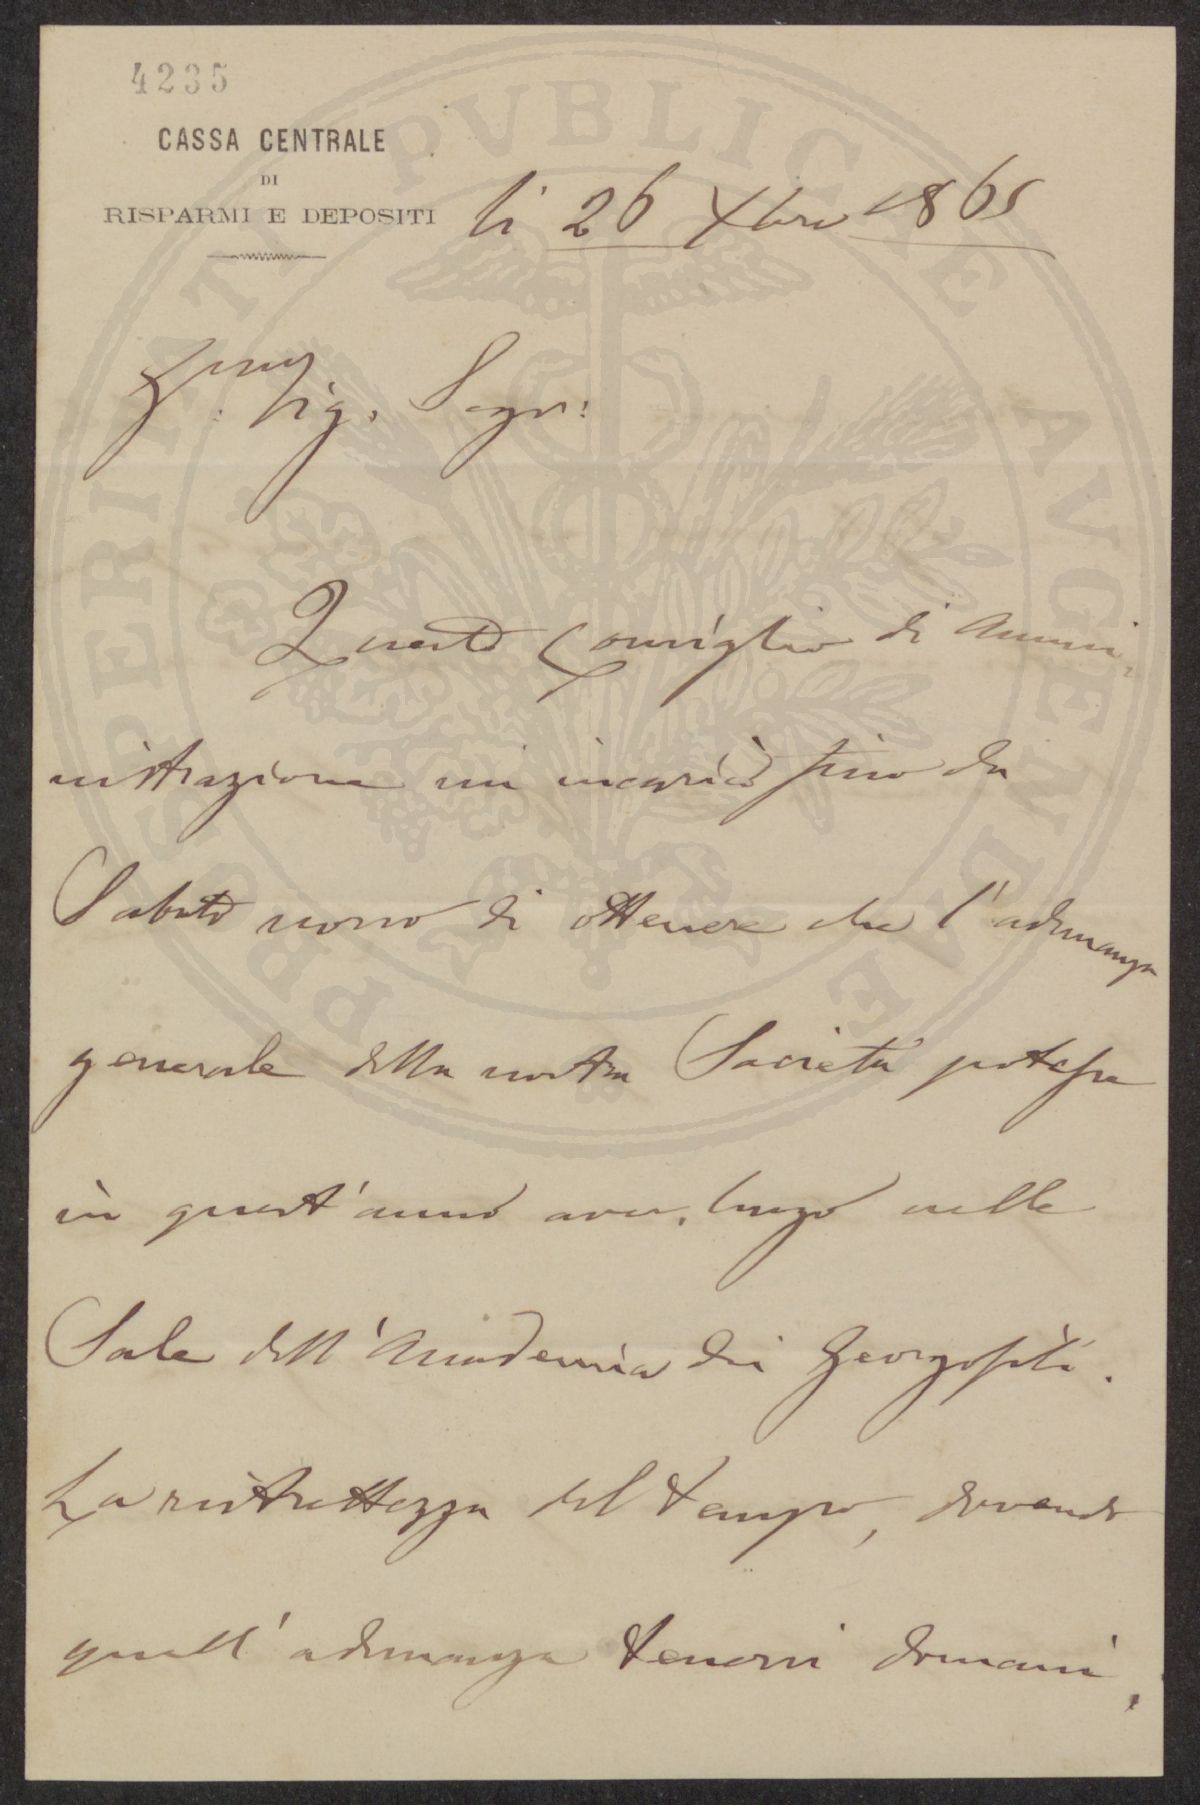 4235
CASSA CENTRALE
DI
RISPARMI E DEPOSITI
li 26 Xbre 1865
Sig. Segr:
Questo Consiglio di Ammi-
nistrazione mi incaricò fino da
Sabato scorso di ottenere che l'adunanza
generale della nostra Società potesse
in quest'anno aver luogo nelle
Sale dell'Accademia dei Georgofili.
La ristrettezza del tempo, dovendo
quell'adunanza tenersi domani,
PROSPERITATI PVBLICAE AVGENDAE